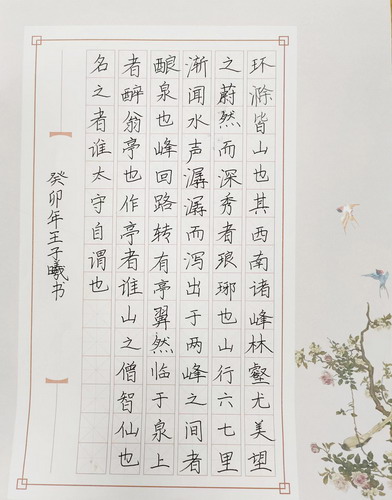 环滁皆山也其西南诸峰林壑尤美望
之蔚然而深秀者琅琊也山行六七里
渐闻水声潺潺而泻出于两峰之间者
酿泉也峰回路转有亭翼然临于泉上
者醉翁亭也作亭者谁山之僧智仙也
名之者谁太守自谓也
癸卯年王子曦书